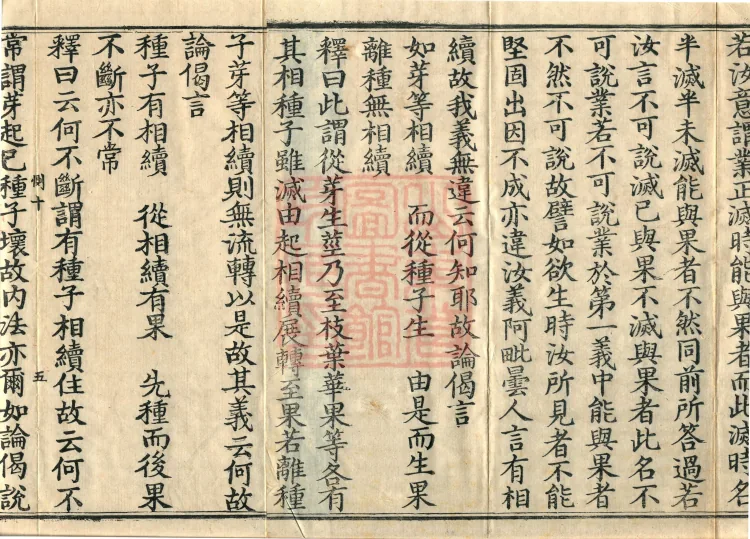 若汝意謂業正滅時能與果者而此滅時名
半滅半未滅能與果者不然同前所荅過若
汝言不可說滅已與果不滅與果者此名不
可說業若不可說業於第一義中能與果者
不然不可說故譬如欲生時汝所見者不能
堅固出因不成亦違汝義阿毗曇人言有相
續故我義無違云何知耶故論偈言
如芽等相續 而從種子生 由是而生果
離種無相續
釋曰此謂從芽生莖乃至枝葉華果等各有
其相種子雖滅由起相續展轉至果若離種
子芽等相續則無流轉以是故其義云何故
論偈言
種子有相續 從相續有果 先種而後果
不斷亦不常
釋曰云何不斷謂有種子相續住故云何不
側十 五
常謂芽起已種子壞故內法亦爾如論偈說